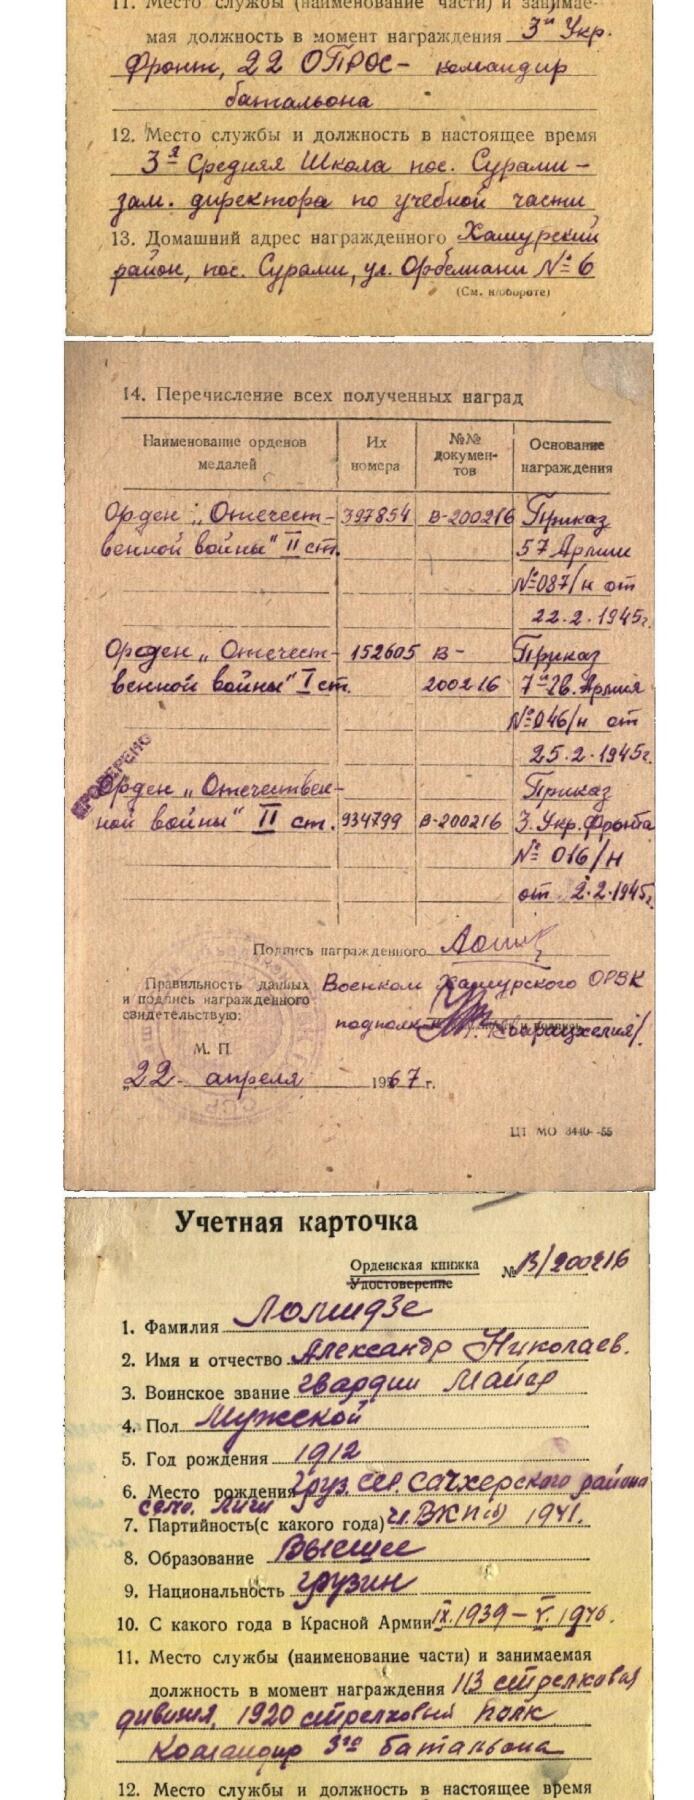 11. Место службы (наименование части) и занимае-
мая должность в момент награждения 3й Укр.
фронт, 22 ОПРОС- командир
батальона
12. Место службы и должность в настоящее время
3я Средняя Школа пос. Сурами-
зам. директора по учебной части
13. Домашний адрес награжденного Хашурский
район, пос. Сурами, ул. Орбелиани №6
(См. н/обороте)
14. Перечисление всех полученных наград
Наименование орденов медалей
Их номера
№№ докумен-тов
Основание награждения
Орден „Отечест- 397854 В-200216 Приказ
венной войны" II ст. 57 Армии
№087/н от
22.2.1945г.
Орден „Отечест- 152605 В- Приказ
венной войны" I ст. 200216 7й гв. Армия
№046/н от
25.2.1945г.
ПРОВЕРЕНО
Орден „Отечествен- Приказ
ной войны" II ст. 934799 В-200216 3. Укр. Фронта
№ 016/н
от 2.2.1945г.
Подпись награжденного
Правильность данных Военком Хашурского ОРВК
и подпись награжденного
свидетельствую: подполк
М. П
„22- апреля 1967 г.
ЦТ МО 3440--55
Учетная карточка
Орденская книжка № В/200216
Удостоверение
1. Фамилия Ломидзе
2. Имя и отчество Александр Николаев.
3. Воинское звание гвардии Майор
4. Пол Мужской
5. Год рождения 1912
6. Место рождения Груз. ССР. Сачхерского района
село.
7. Партийность(с какого года) чл. ВКП(б) 1941.
8. Образование Высшее
9. Национальность грузин
10. С какого года в Красной Армии IX.1939 – V. 1946.
11. Место службы (наименование части) и занимаемая
должность в момент награждения 113 стрелковая
дивизия, 1920 стрелковый полк
Командир 3го батальона
12. Место службы и должность в настоящее время